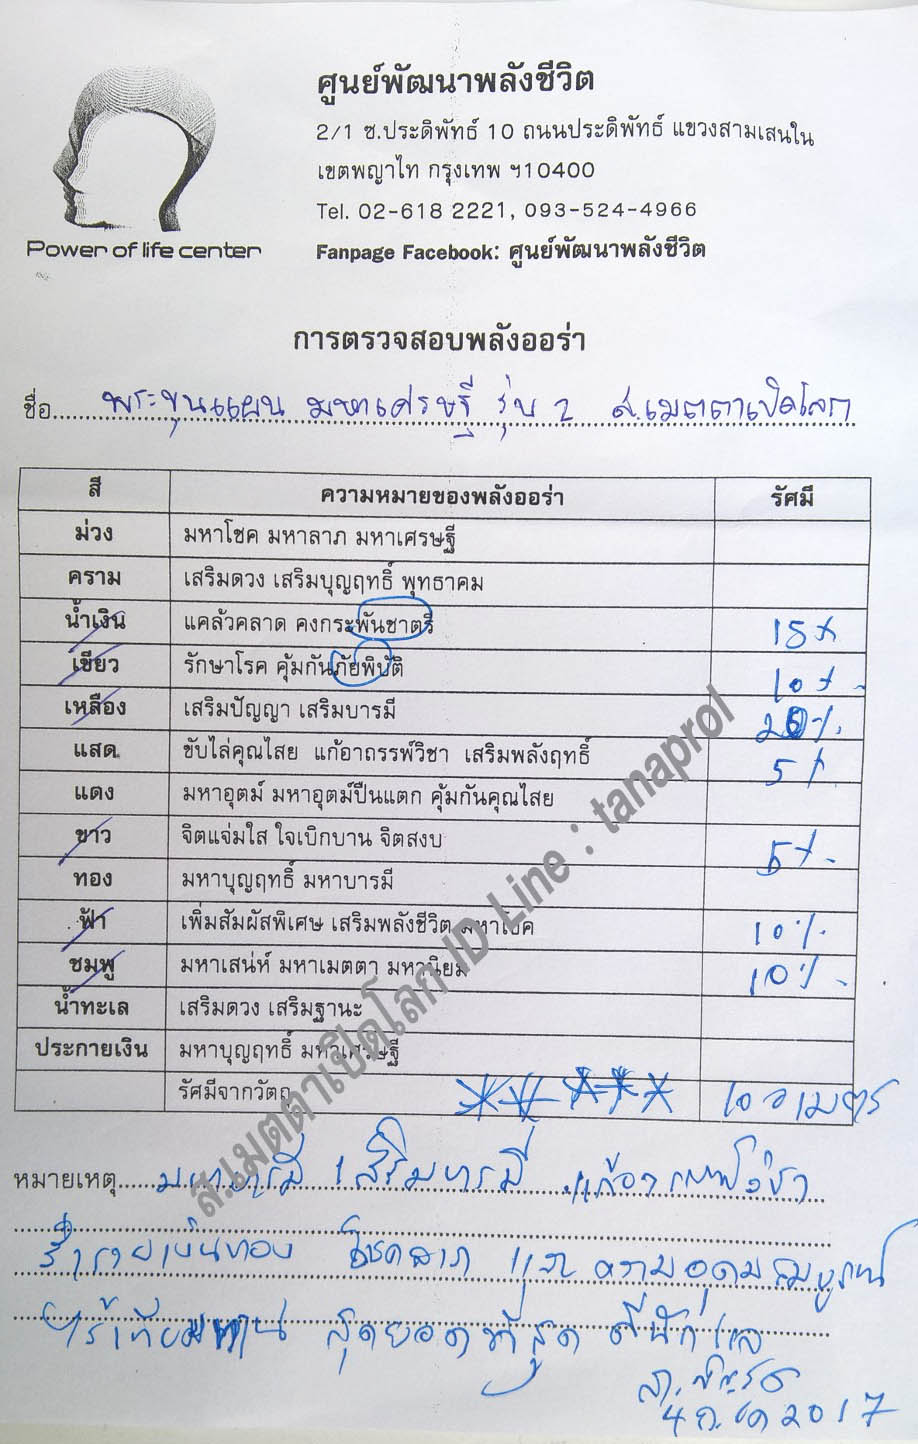 ศูนย์พัฒนาพลังชีวิต
2/1 ซ.ประดิพัทธ์ 10 ถนนประดิพัทธ์ แขวงสามเสนใน
เขตพญาไท กรุงเทพ ฯ10400
Tel. 02-618 2221, 093-524-4966
Power of life center
Fanpage Facebook: ศูนย์พัฒนาพลังชีวิต
การตรวจสอบพลังออร่า
ชื่อ พระขุนแผน มหาเศรษฐี รุ่น 2 ส.เมตตาเปิดโลก
สี ความหมายของพลังออร่า รัศมี
ม่วง มหาโชค มหาลาภ มหาเศรษฐี
คราม เสริมดวง เสริมบุญฤทธิ์ พุทธาคม
น้ำเงิน แคล้วคลาด คงกระพันชาตรี 15%
เขียว รักษาโรค คุ้มกันภัยพิบัติ 10%
เหลือง เสริมปัญญา เสริมบารมี
แสด ขับไล่คุณไสย แก้อาถรรพ์วิชา เสริมพลังฤทธิ์ 5%
แดง มหาอุตม์ มหาอุตม์ปืนแตก คุ้มกันคุณไสย
ขาว จิตแจ่มใส ใจเบิกบาน จิตสงบ 5%
ทอง มหาบุญฤทธิ์ มหาบารมี
ฟ้า เพิ่มสัมผัสพิเศษ เสริมพลังชีวิต มหาโชค 10%
ชมพู มหาเสน่ห์ มหาเมตตา มหานิยม 10%
น้ำทะเล เสริมดวง เสริมฐานะ
ประกายเงิน มหาบุญฤทธิ์ มหาเศรษฐี
รัศมีจากวัตถุ เมตร
หมายเหตุ มหาบารมี เสริมบารมี
ร่ำรวยเงินทอง โชคลาภ และ ความอุดมสมบูรณ์
ไร้เทียมทาน สุดยอดที่สุด ดีนักแล
4 2017
ส.เมตตาเปิดโลก ID Line : tanaprol